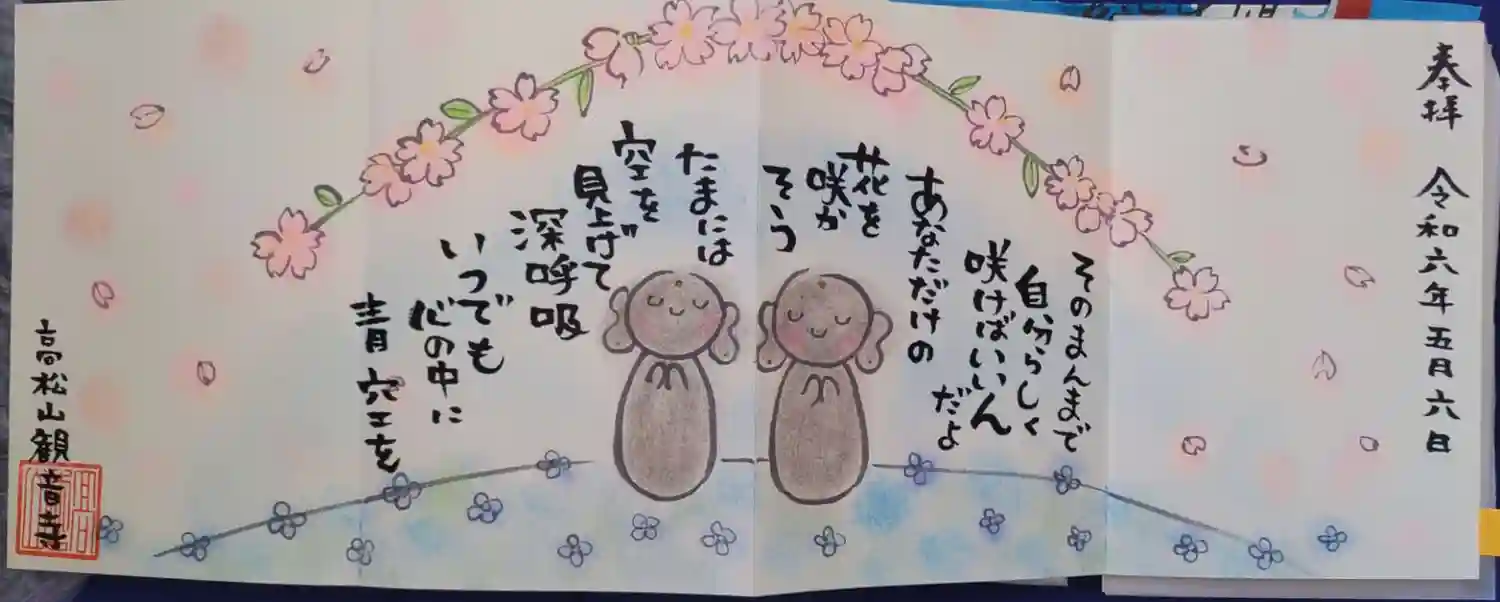 奉拝 令和六年五月六日
そのまんまで
自分らしく
咲けばいいん
だよ
あなただけの
花を
咲か
そう
たまには
空を
見上げて
深呼吸
いつでも
心の中に
青空を
高松山観音寺